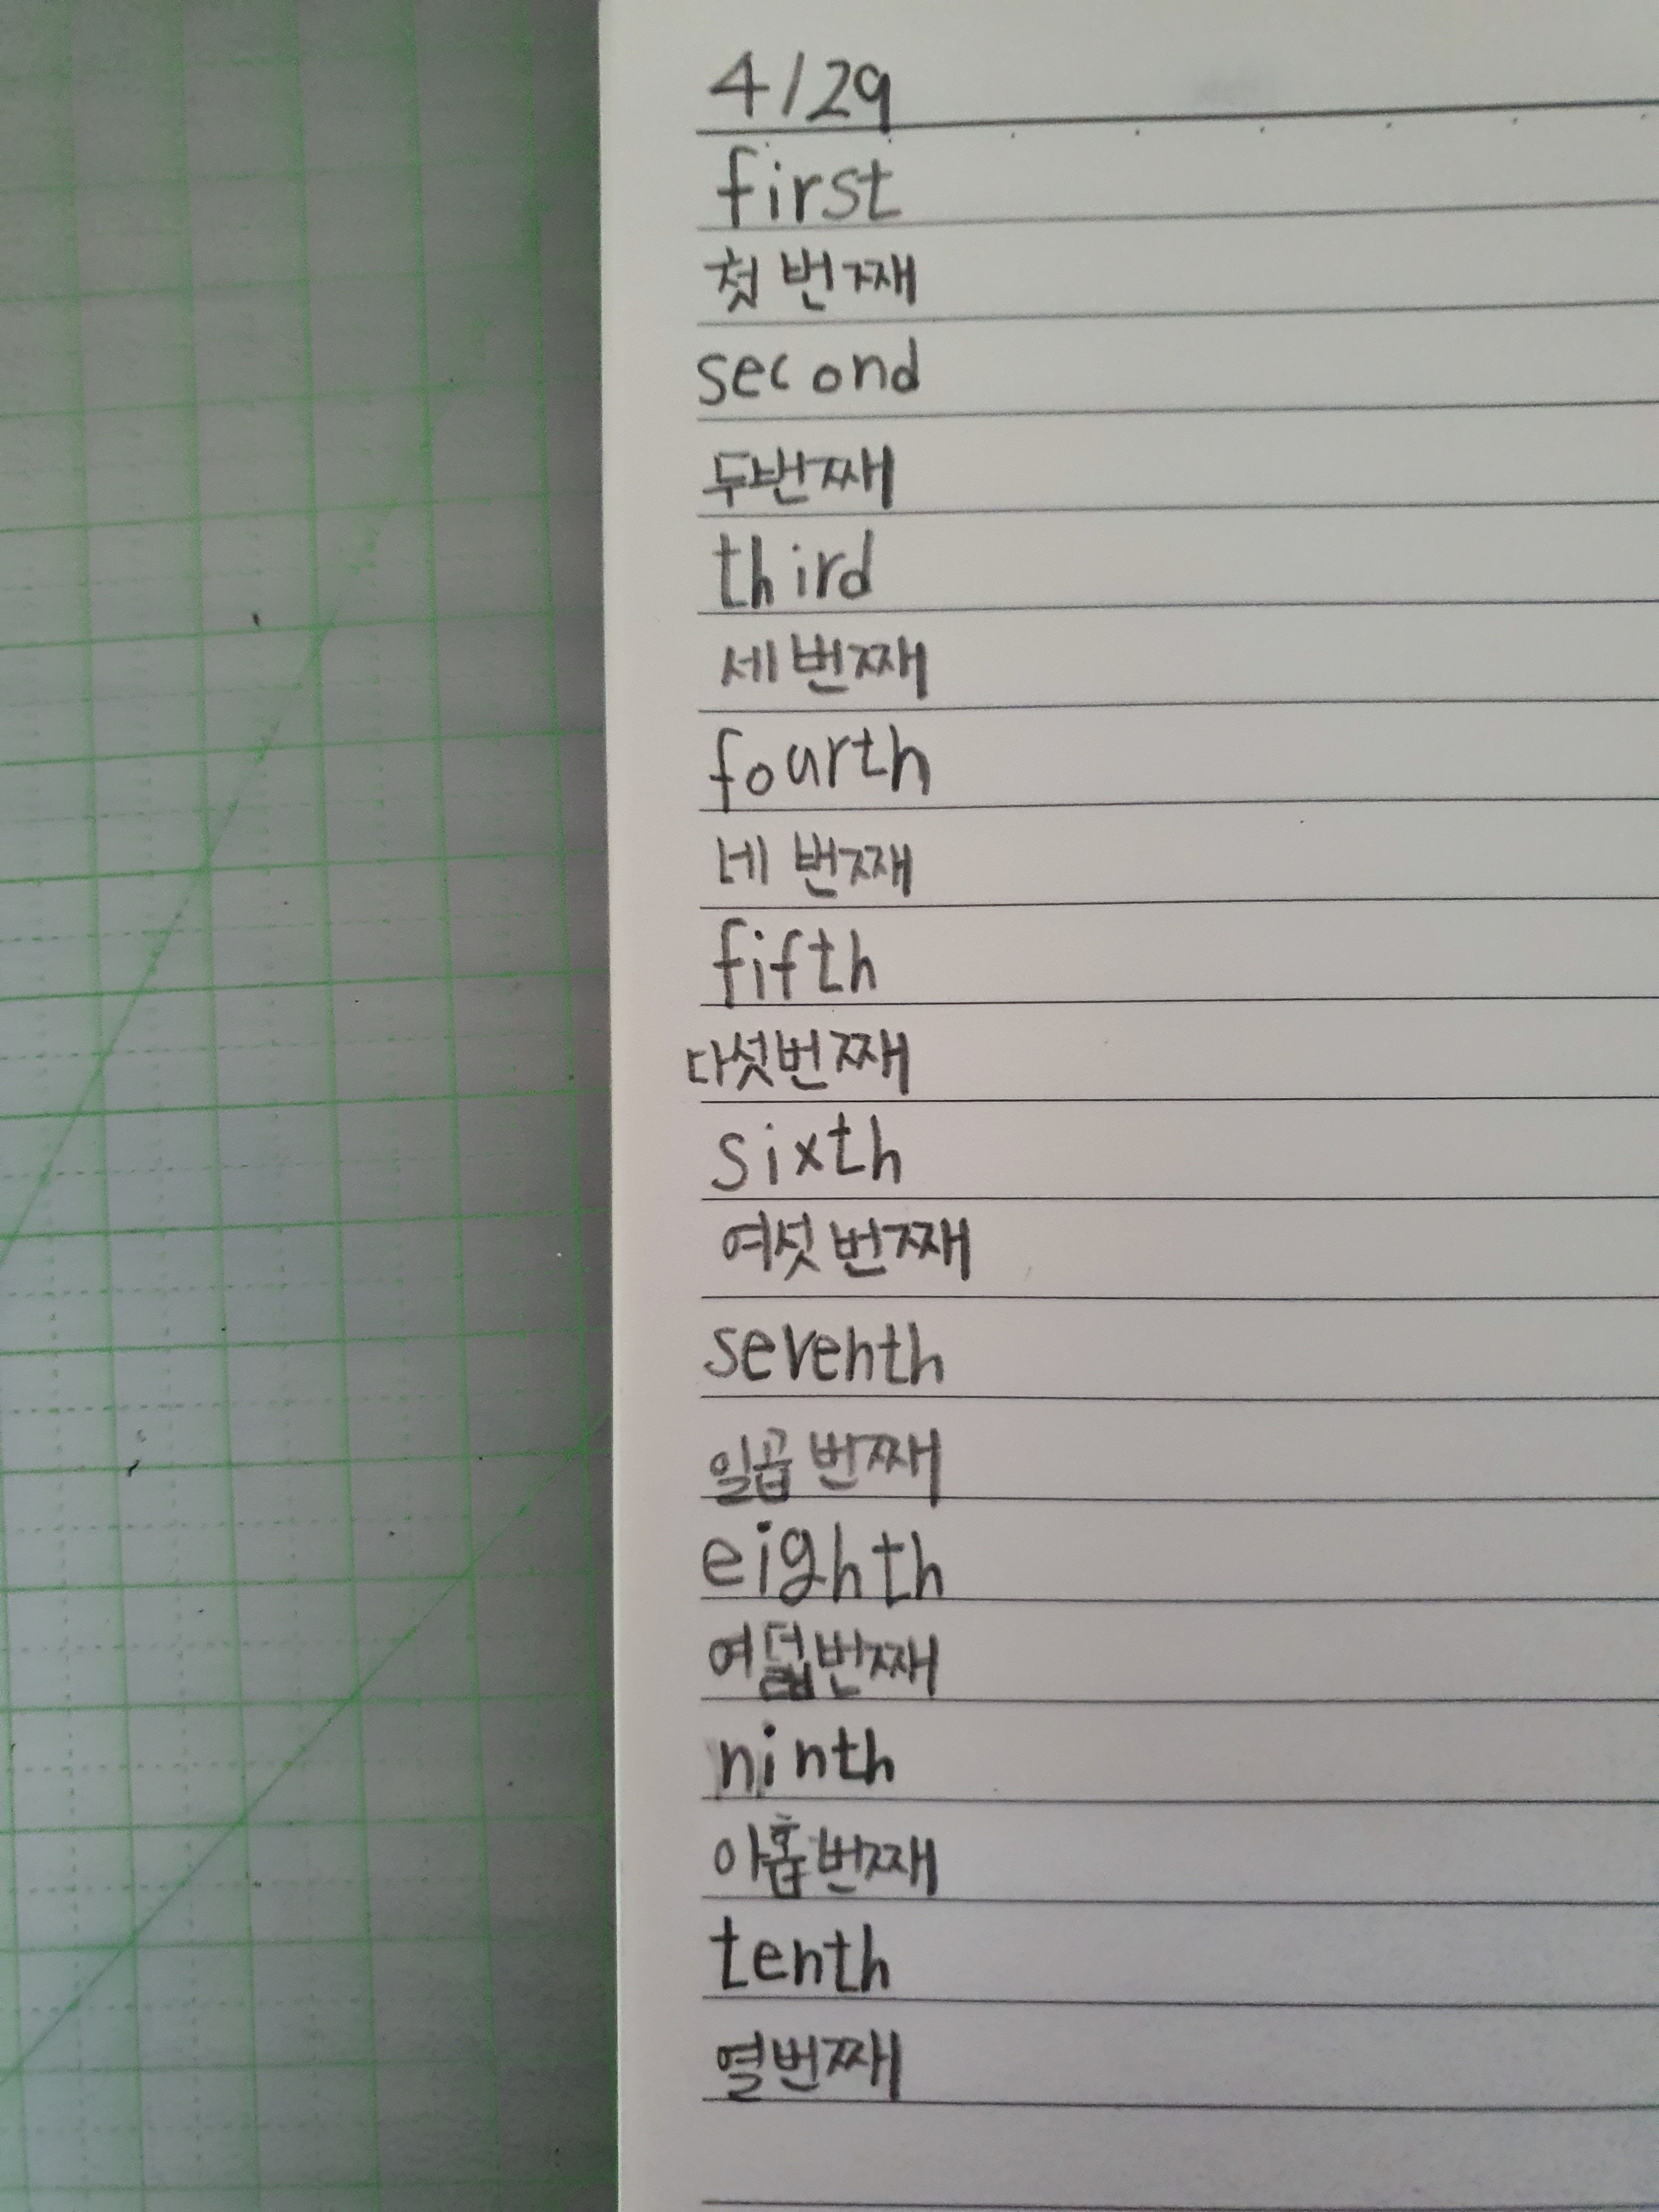 4/29
first
첫 번째
second
두번째
third
세 번째
fourth
네 번째
fifth
다섯번째
sixth
여섯 번째
seventh
일곱 번째
eighth
여덟번째
ninth
아홉번째
tenth
열번째